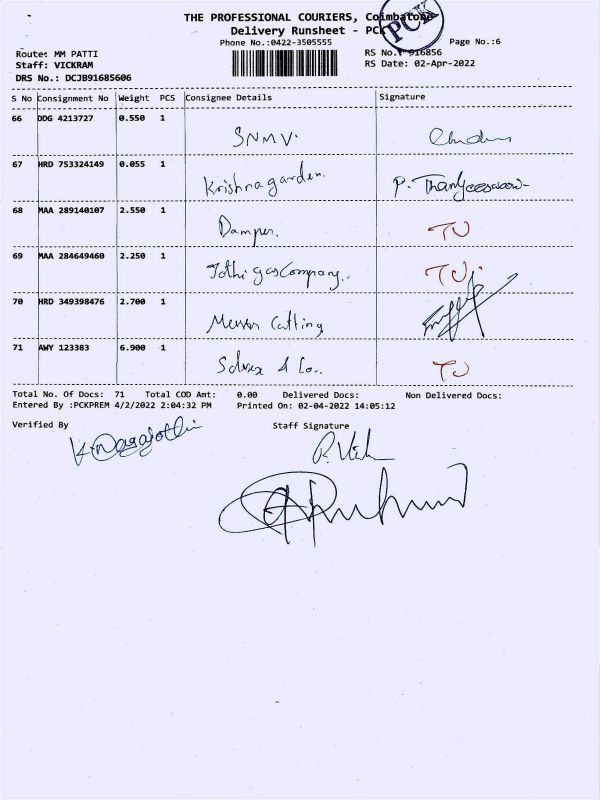 THE PROFESSIONAL COURIERS, Coimbatore
Delivery Runsheet - PCK
PCK
Phone No.:0422-3505555
Page No.:6
Route: MM PATTI
RS No.: 916856
Staff: VICKRAM
RS Date: 02-Apr-2022
DRS No.: DCJB91685606
S No Consignment No Weight PCS Consignee Details Signature
66 DDG 4213727 0.550 1
SNMV.
67 HRD 753324149 0.055 1
Krishnagarden.
68 MAA 289140107 2.550 1
Damper. TU
69 MAA 284649460 2.250 1
Jothi gas Company.. TU
70 HRD 349398476 2.700 1
Cutting
71 AWY 123383 6.900 1
& Co.. TU
Total No. Of Docs: 71 Total COD Amt: 0.00 Delivered Docs: Non Delivered Docs:
Entered By :PCKPREM 4/2/2022 2:04:32 PM Printed On: 02-04-2022 14:05:12
Verified By Staff Signature